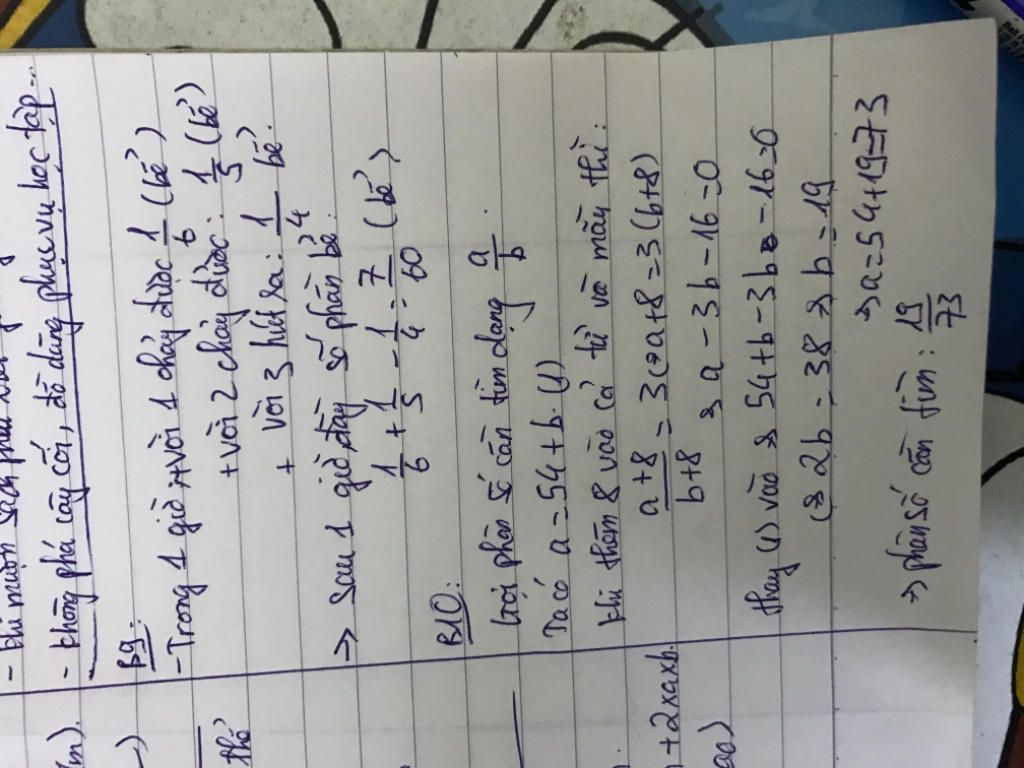 - khi muốn sách phải
- không phá cây cối, đồ dùng phục vụ học tập...
B9:
- Trong 1 giờ: + vòi 1 chảy được 1/6 (bể)
+ vòi 2 chảy được: 1/5 (bể)
+ vòi 3 hút ra: 1/4 bể.
-> Sau 1 giờ, đầy số phần bể:
1/6 + 1/5 - 1/4 = 7/60 (bể)
B10:
Gọi phân số cần tìm dạng a/b.
Ta có a = 54 + b. (1)
khi thêm 8 vào cả tử và mẫu thì:
a+8/b+8 = 3 (=> a+8 = 3(b+8)
=> a - 3b - 16 = 0
thay (1) vào => 54 + b - 3b - 16 = 0
(=> 2b = 38 => b = 19
=> a = 54 + 19 = 73
=> phân số cần tìm: 19/73
/m).
thể
+ 2xaxb.